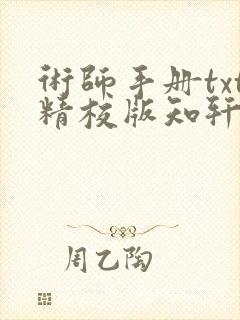 術師手册txt
精校版知轩
周乙陶